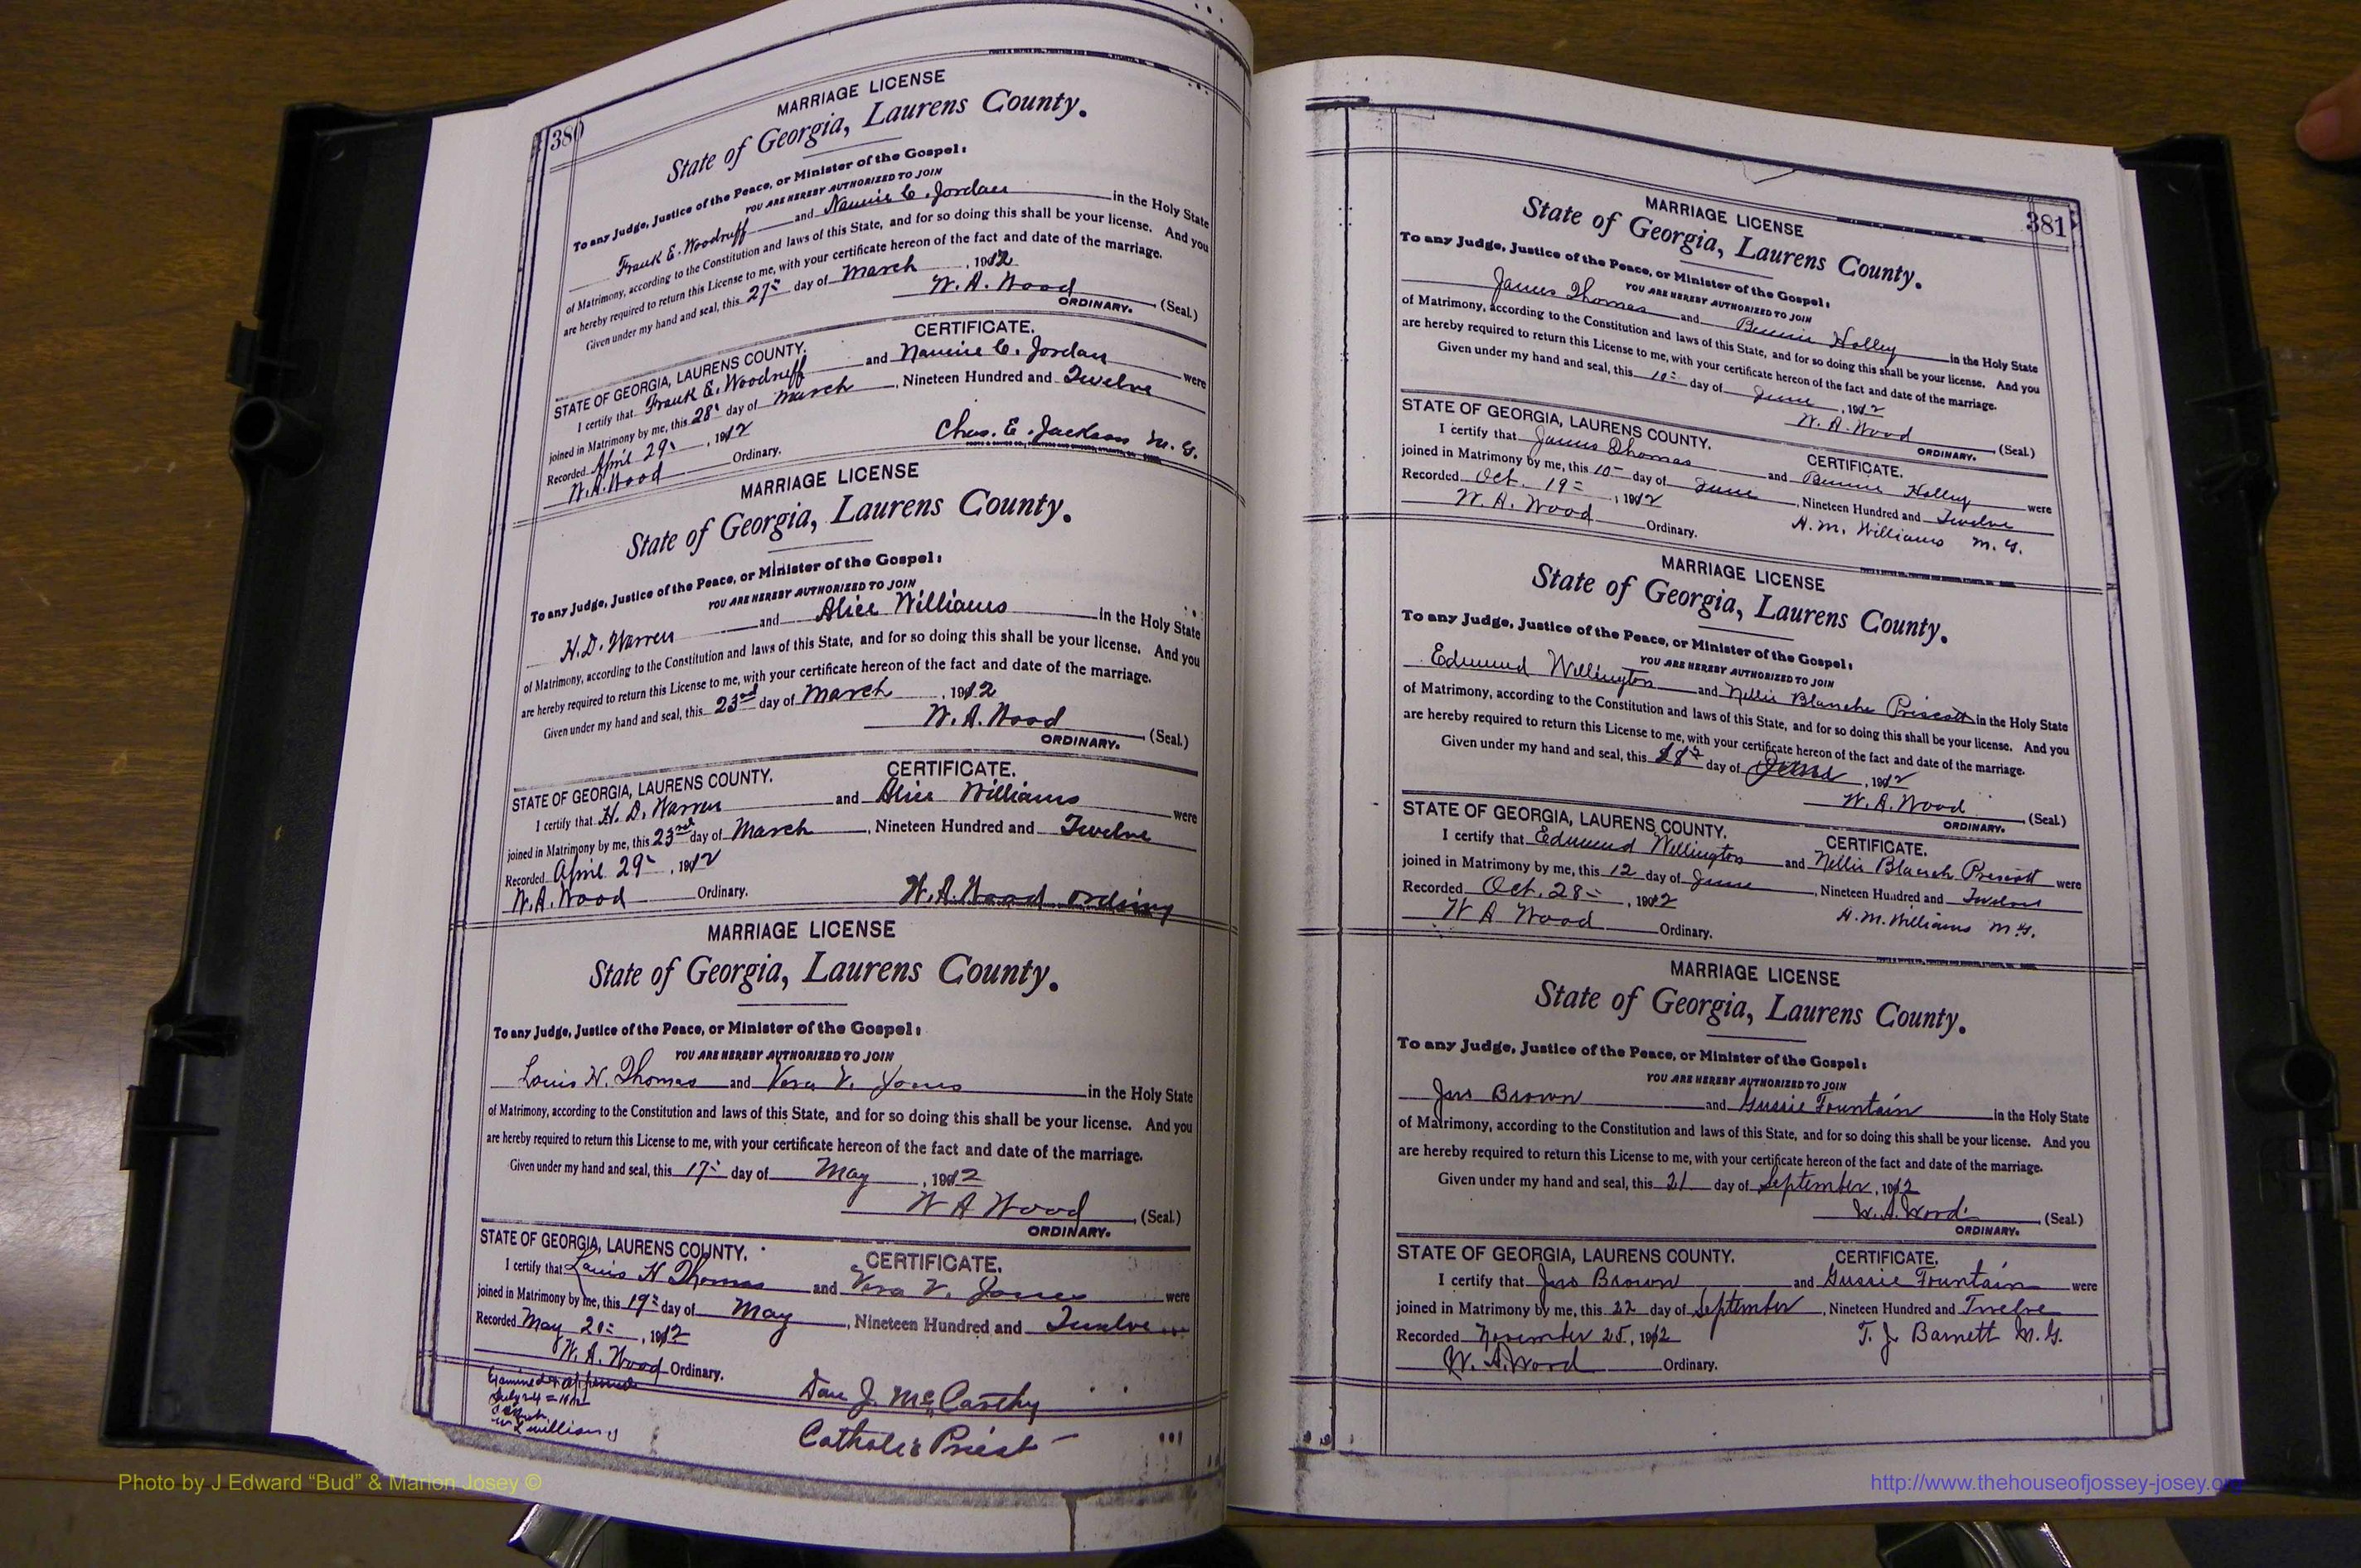 380
MARRIAGE LICENSE
State of Georgia, Laurens County.
To any Judge, Justice of the Peace, or Minister of the Gospel:
YOU ARE HEREBY AUTHORIZED TO JOIN
Frank E. Woodruff and Nannie C. Jordan in the Holy State
of Matrimony, according to the Constitution and laws of this State, and for so doing this shall be your license. And you
are hereby required to return this License to me, with your certificate hereon of the fact and date of the marriage.
Given under my hand and seal, this 27" day of March, 1912
W. A. Wood (Seal.)
ORDINARY.
STATE OF GEORGIA, LAURENS COUNTY. CERTIFICATE.
I certify that Frank E. Woodruff and Nannie C. Jordan were
joined in Matrimony by me, this 28" day of March, Nineteen Hundred and Twelve
Recorded April 29", 1912 Chas. E. Jackson M. G.
W. A. Wood Ordinary.
MARRIAGE LICENSE
State of Georgia, Laurens County.
To any Judge, Justice of the Peace, or Minister of the Gospel:
YOU ARE HEREBY AUTHORIZED TO JOIN
H. D. Warren and Alice Williams in the Holy State
of Matrimony, according to the Constitution and laws of this State, and for so doing this shall be your license. And you
are hereby required to return this License to me, with your certificate hereon of the fact and date of the marriage.
Given under my hand and seal, this 23rd day of March, 1912
W. A. Wood (Seal.)
ORDINARY.
STATE OF GEORGIA, LAURENS COUNTY. CERTIFICATE.
I certify that H. D. Warren and Alice Williams were
joined in Matrimony by me, this 23rd day of March, Nineteen Hundred and Twelve
Recorded April 29", 1912
W. A. Wood Ordinary. W. A. Wood
MARRIAGE LICENSE
State of Georgia, Laurens County.
To any Judge, Justice of the Peace, or Minister of the Gospel:
YOU ARE HEREBY AUTHORIZED TO JOIN
Louis H. Thomas and Vera V. Jones in the Holy State
of Matrimony, according to the Constitution and laws of this State, and for so doing this shall be your license. And you
are hereby required to return this License to me, with your certificate hereon of the fact and date of the marriage.
Given under my hand and seal, this 17" day of May, 1912
W A Wood (Seal.)
ORDINARY.
STATE OF GEORGIA, LAURENS COUNTY. CERTIFICATE.
I certify that Louis H Thomas and Vera V. Jones were
joined in Matrimony by me, this 19" day of May, Nineteen Hundred and Twelve
Recorded May, 1912
W. A. Wood Ordinary.
Examined & approved
Dan J. McCarthy
Catholic Priest
381
MARRIAGE LICENSE
State of Georgia, Laurens County.
To any Judge, Justice of the Peace, or Minister of the Gospel:
YOU ARE HEREBY AUTHORIZED TO JOIN
James Thomas and Bennie Holley in the Holy State
of Matrimony, according to the Constitution and laws of this State, and for so doing this shall be your license. And you
are hereby required to return this License to me, with your certificate hereon of the fact and date of the marriage.
Given under my hand and seal, this 10" day of June, 1912
W. A. Wood (Seal.)
ORDINARY.
STATE OF GEORGIA, LAURENS COUNTY. CERTIFICATE.
I certify that James Thomas and Bennie Holley were
joined in Matrimony by me, this 10" day of June, Nineteen Hundred and Twelve
Recorded Oct. 19", 1912 H. M. Williams M. G.
W. A. Wood Ordinary.
MARRIAGE LICENSE
State of Georgia, Laurens County.
To any Judge, Justice of the Peace, or Minister of the Gospel:
YOU ARE HEREBY AUTHORIZED TO JOIN
Edmund Wellington and Nellie Blanche Prescott in the Holy State
of Matrimony, according to the Constitution and laws of this State, and for so doing this shall be your license. And you
are hereby required to return this License to me, with your certificate hereon of the fact and date of the marriage.
Given under my hand and seal, this day of June, 1912
W. A. Wood (Seal.)
ORDINARY.
STATE OF GEORGIA, LAURENS COUNTY. CERTIFICATE.
I certify that Edmund Wellington and Nellie Blanch Prescott were
joined in Matrimony by me, this 12 day of June, Nineteen Hundred and Twelve
Recorded Oct. 28", 1912 H. M. Williams M. G.
W A Wood Ordinary.
MARRIAGE LICENSE
State of Georgia, Laurens County.
To any Judge, Justice of the Peace, or Minister of the Gospel:
YOU ARE HEREBY AUTHORIZED TO JOIN
Jno Brown and Gussie Fountain in the Holy State
of Matrimony, according to the Constitution and laws of this State, and for so doing this shall be your license. And you
are hereby required to return this License to me, with your certificate hereon of the fact and date of the marriage.
Given under my hand and seal, this 21 day of September, 1912
W. A. Wood (Seal.)
ORDINARY.
STATE OF GEORGIA, LAURENS COUNTY. CERTIFICATE.
I certify that Jno Brown and Gussie Fountain were
joined in Matrimony by me, this 22 day of September, Nineteen Hundred and Twelve
Recorded November 25, 1912 T. J. Barnett M. G.
W. A. Wood Ordinary.
Photo by J Edward “Bud” & Marion Josey ©
http://www.thehouseofjossey-josey.org